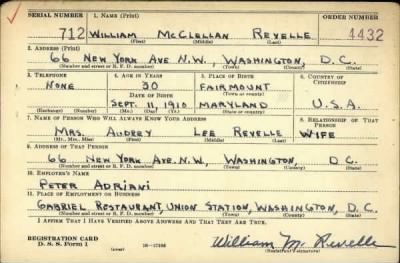 SERIAL NUMBER 1. NAME (Print) ORDER NUMBER
712 WILLIAM McCLELLAN REVELLE 4432
(First) (Middle) (Last)
2. ADDRESS (Print)
66 NEW YORK AVE N.W., WASHINGTON, D.C.
(Number and street or R. F. D. number) (Town) (County) (State)
3. TELEPHONE 4. AGE IN YEARS 5. PLACE OF BIRTH 6. COUNTRY OF CITIZENSHIP
NONE 30 FAIRMOUNT
DATE OF BIRTH (Town or county)
SEPT. 11, 1910 MARYLAND U.S.A.
(Exchange) (Number) (Mo.) (Day) (Yr.) (State or country)
7. NAME OF PERSON WHO WILL ALWAYS KNOW YOUR ADDRESS 8. RELATIONSHIP OF THAT PERSON
MRS. AUDREY LEE REVELLE WIFE
(Mr., Mrs., Miss) (First) (Middle) (Last)
9. ADDRESS OF THAT PERSON
66 NEW YORK AVE. N.W., WASHINGTON, D.C.
(Number and street or R. F. D. number) (Town) (County) (State)
10. EMPLOYER'S NAME
PETER ADRIANI
11. PLACE OF EMPLOYMENT OR BUSINESS
GABRIEL RESTAURANT, UNION STATION, WASHINGTON, D.C.
(Number and street or R. F. D. number) (Town) (County) (State)
I AFFIRM THAT I HAVE VERIFIED ABOVE ANSWERS AND THAT THEY ARE TRUE.
REGISTRATION CARD
D. S. S. Form 1 (over) William M. Revelle
(Registrant's signature)